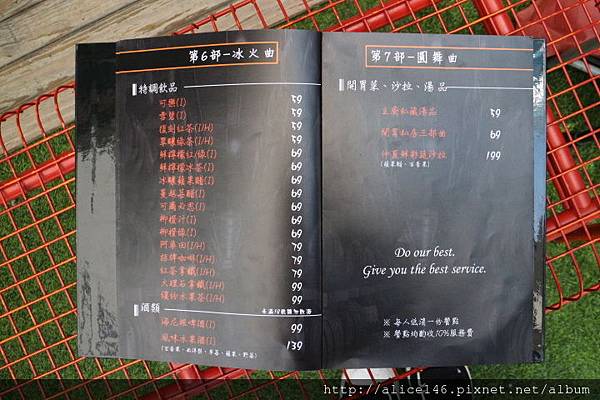 第6部-冰火曲
特調飲品
可樂(I) 59
雪碧(I) 59
復刻紅茶(I/H) 59
翠釀綠茶(I/H) 59
鮮檸檬紅/綠(I) 69
鮮檸檬冰茶(I) 69
冰釀蘋果醋(I) 69
蔓越莓醋(I) 69
可爾必思(I) 69
柳橙汁(I) 69
柳橙綠(I) 69
阿華田(I/H) 79
招牌咖啡(I/H) 79
紅茶拿鐵(I/H) 79
大理石拿鐵(I/H) 99
繽紛水果茶(I/H) 99
酒類
海尼根啤酒(I) 99
風味水果酒(I) 139
第7部-圓舞曲
開胃菜、沙拉、湯品
主廚私藏湯品 59
開胃私房三部曲 69
仲夏鮮彩蔬沙拉 199
Do our best.
Give you the best service.
※ 每人低消一份餐點
※ 餐點均酌收10%服務費
http://alice146.pixnet.net/album